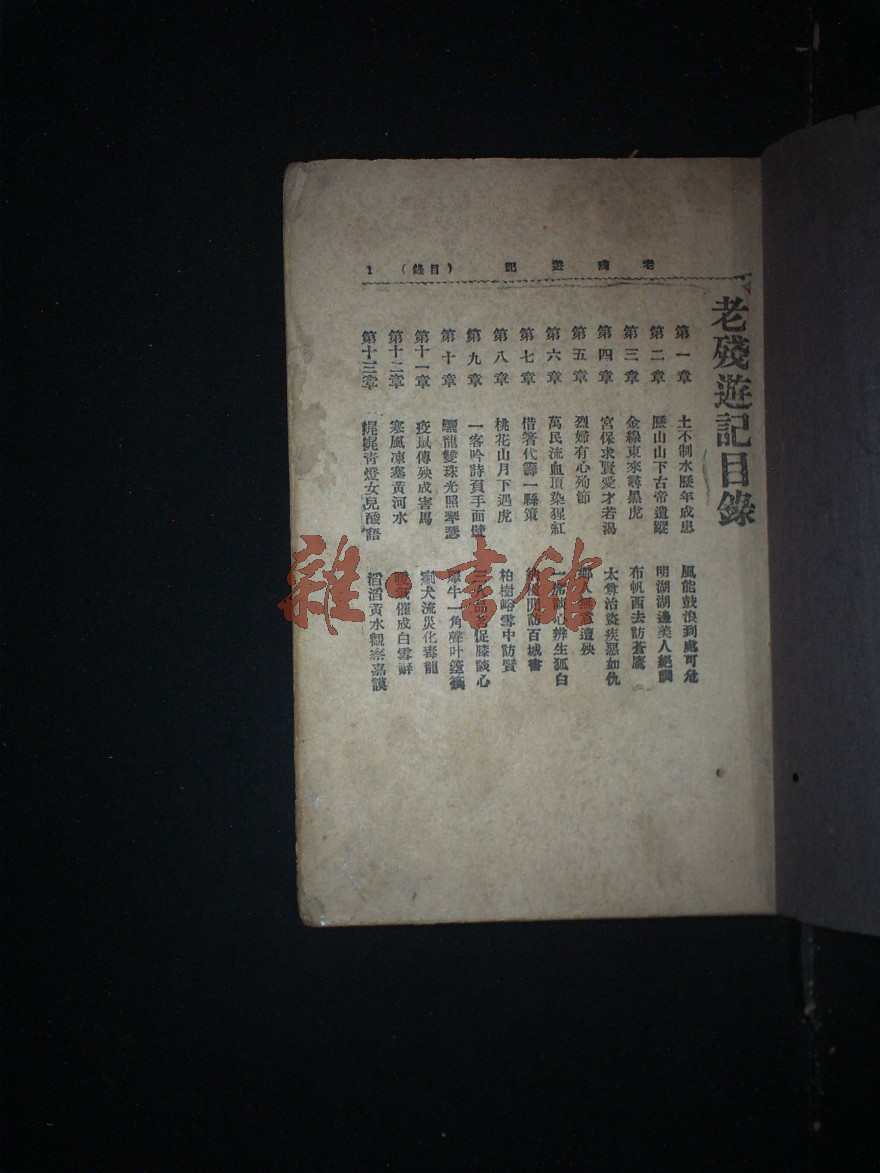 老殘遊記 (目錄) 1
老殘遊記目錄
第一章 土不制水歷年成患 風能鼓浪到處可危
第二章 歷山山下古帝遺蹤 明湖湖邊美人絕調
第三章 金線東來尋黑虎 布帆西去訪蒼鷹
第四章 宮保求賢愛才若渴 太尊治盜疾惡如仇
第五章 烈婦有心殉節 鄉人無意遭殃
第六章 萬民流血頂染猩紅 一席談心辨生狐白
第七章 借箸代籌一縣策 納楹閒訪百城書
第八章 桃花山月下遇虎 柏樹峪雪中訪賢
第九章 一客吟詩負手面壁 三人品茗促膝談心
第十章 驪龍雙珠光照琴瑟 犀牛一角聲叶箜篌
第十一章 疫鼠傳殃成害馬 瘈犬流災化毒龍
第十二章 寒風凍塞黃河水 暖氣催成白雪辭
第十三章 娓娓青燈女兒酸語 滔滔黃水觀察嘉謨
雜·書館